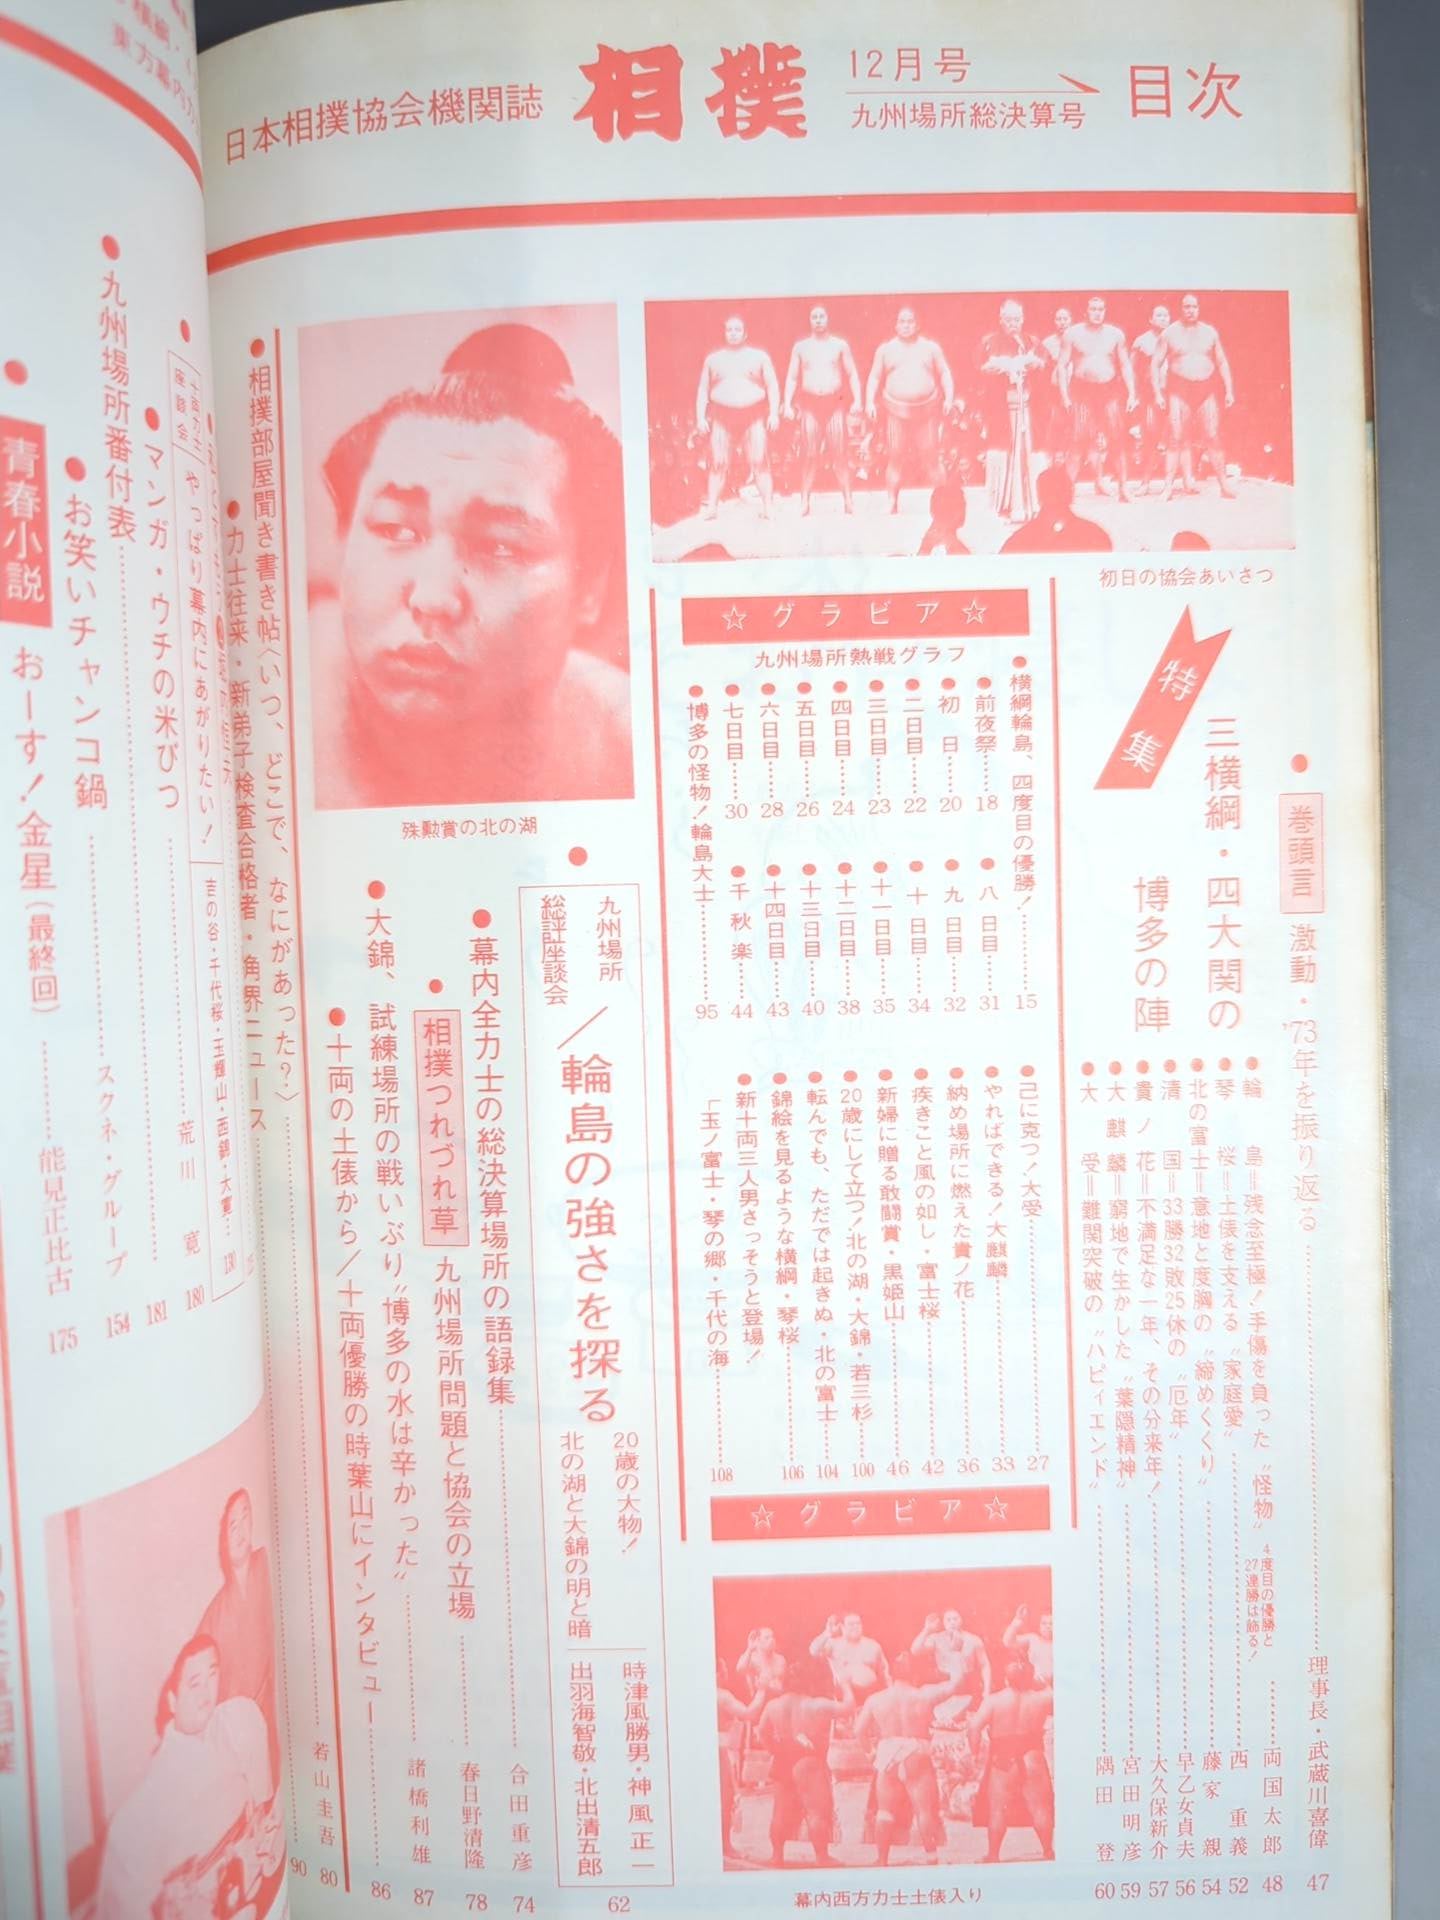 日本相撲協会機関誌 相撲 12月号 九州場所総決算号 目次
初日の協会あいさつ
●巻頭言 激動・'73年を振り返る……理事長・武蔵川喜偉 47
特集 三横綱・四大関の博多の陣
●輪島＝残念至極！手傷を負った〝怪物〟4度目の優勝と27連勝は飾る！……両国太郎 48
●琴桜＝土俵を支える〝家庭愛〟……西重義 52
●北の富士＝意地と度胸の〝締めくくり〟……藤家親 54
●清国＝33勝32敗25休の〝厄年〟……早乙女貞夫 56
●貴ノ花＝不満足な一年、その分来年！……大久保新介 57
●大麒麟＝窮地で生かした〝葉隠精神〟……宮田明彦 59
●大受＝難関突破の〝ハピィエンド〟……隅田登 60
☆グラビア☆
九州場所熱戦グラフ
●横綱輪島、四度目の優勝！……15
●前夜祭……18
●初日……20
●二日目……22
●三日目……23
●四日目……24
●五日目……26
●六日目……28
●七日目……30
●八日目……31
●九日目……32
●十日目……34
●十一日目……35
●十二日目……38
●十三日目……40
●十四日目……43
●千秋楽……44
●博多の怪物！輪島大士……95
●己に克つ！大受……27
●やればできる！大麒麟……33
●納め場所に燃えた貴ノ花……36
●疾きこと風の如し・富士桜……42
●新婦に贈る敢闘賞・黒姫山……46
●20歳にして立つ！北の湖・大錦・若三杉……100
●転んでも、ただでは起きぬ・北の富士……104
●錦絵を見るような横綱・琴桜……106
●新十両三人男さっそうと登場！
「玉ノ富士・琴の郷・千代の海……108
☆グラビア☆
幕内西方力士土俵入り
殊勲賞の北の湖
●九州場所総評座談会／輪島の強さを探る
20歳の大物！北の湖と大錦の明と暗
時津風勝男・神風正一
出羽海智敬・北出清五郎 62
●幕内全力士の総決算場所の語録集……合田重彦 74
●相撲つれづれ草 九州場所問題と協会の立場……春日野清隆 78
●大錦、試練場所の戦いぶり〝博多の水は辛かった〟……諸橋利雄 87
●十両の土俵から／十両優勝の時葉山にインタビュー……86
●相撲部屋聞き書き帖〈いつ、どこで、なにがあった？〉……若山圭吾 80
●力士往来・新弟子検査合格者・角界ニュース……90
十両力士座談会 やっぱり幕内にあがりたい！ 吉の谷・千代桜・玉輝山・西錦・大寛… 130
●マンガ・ウチの米びつ……荒川寛 180
●九州場所番付表……181
●お笑いチャンコ鍋……スクネ・グループ 154
●青春小説 おーす！金星（最終回）……能見正比古 175